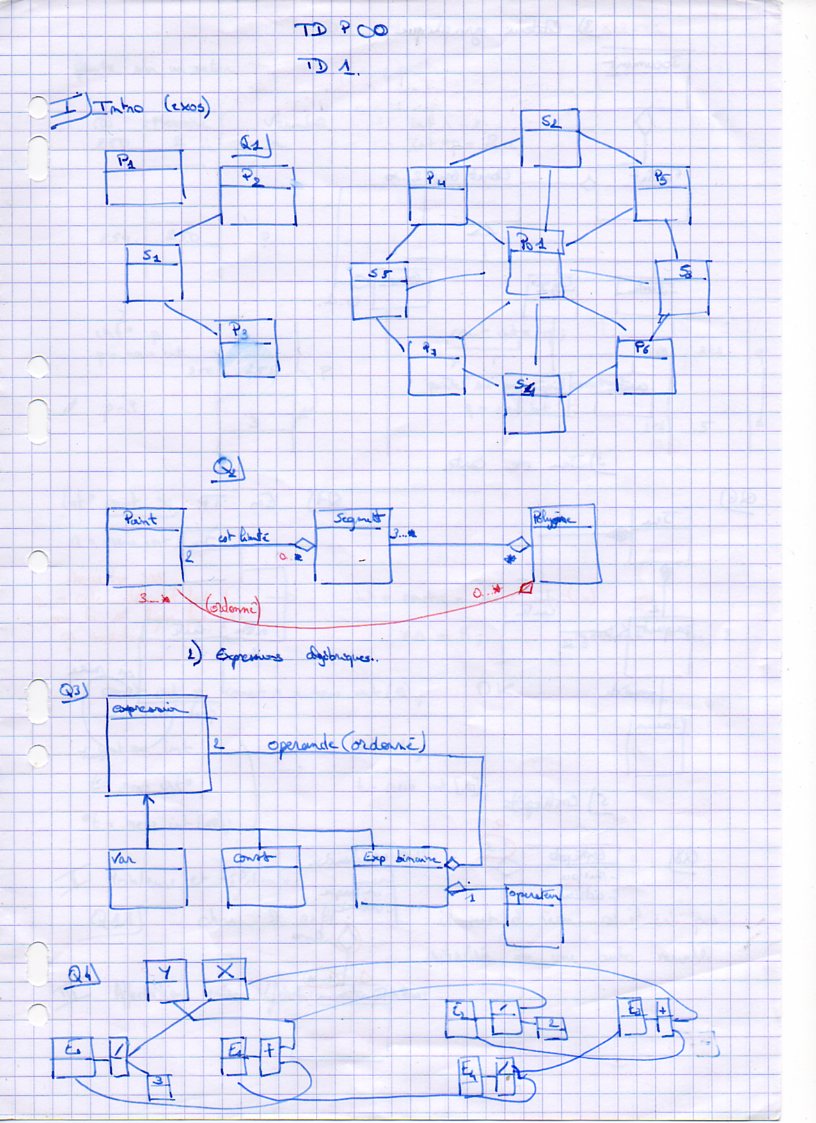 TD POO
TD 1.
I) Intro (exos)
Q1)
P1
P2
S1
P3
S2
P4
P5
Po1
S5
S3
P7
P6
S4
Q2
Point
est limité
Segment
Polygone
2
0..*
3...*
*
3...*
(ordonné)
0...*
1) Expressions algébriques..
Q3)
expression
2
operande (ordonné)
Var
Const
Exp binaire
1
operateur
Q4)
Y
X
/
3
+
E2
/
2
E3
+
E4
/